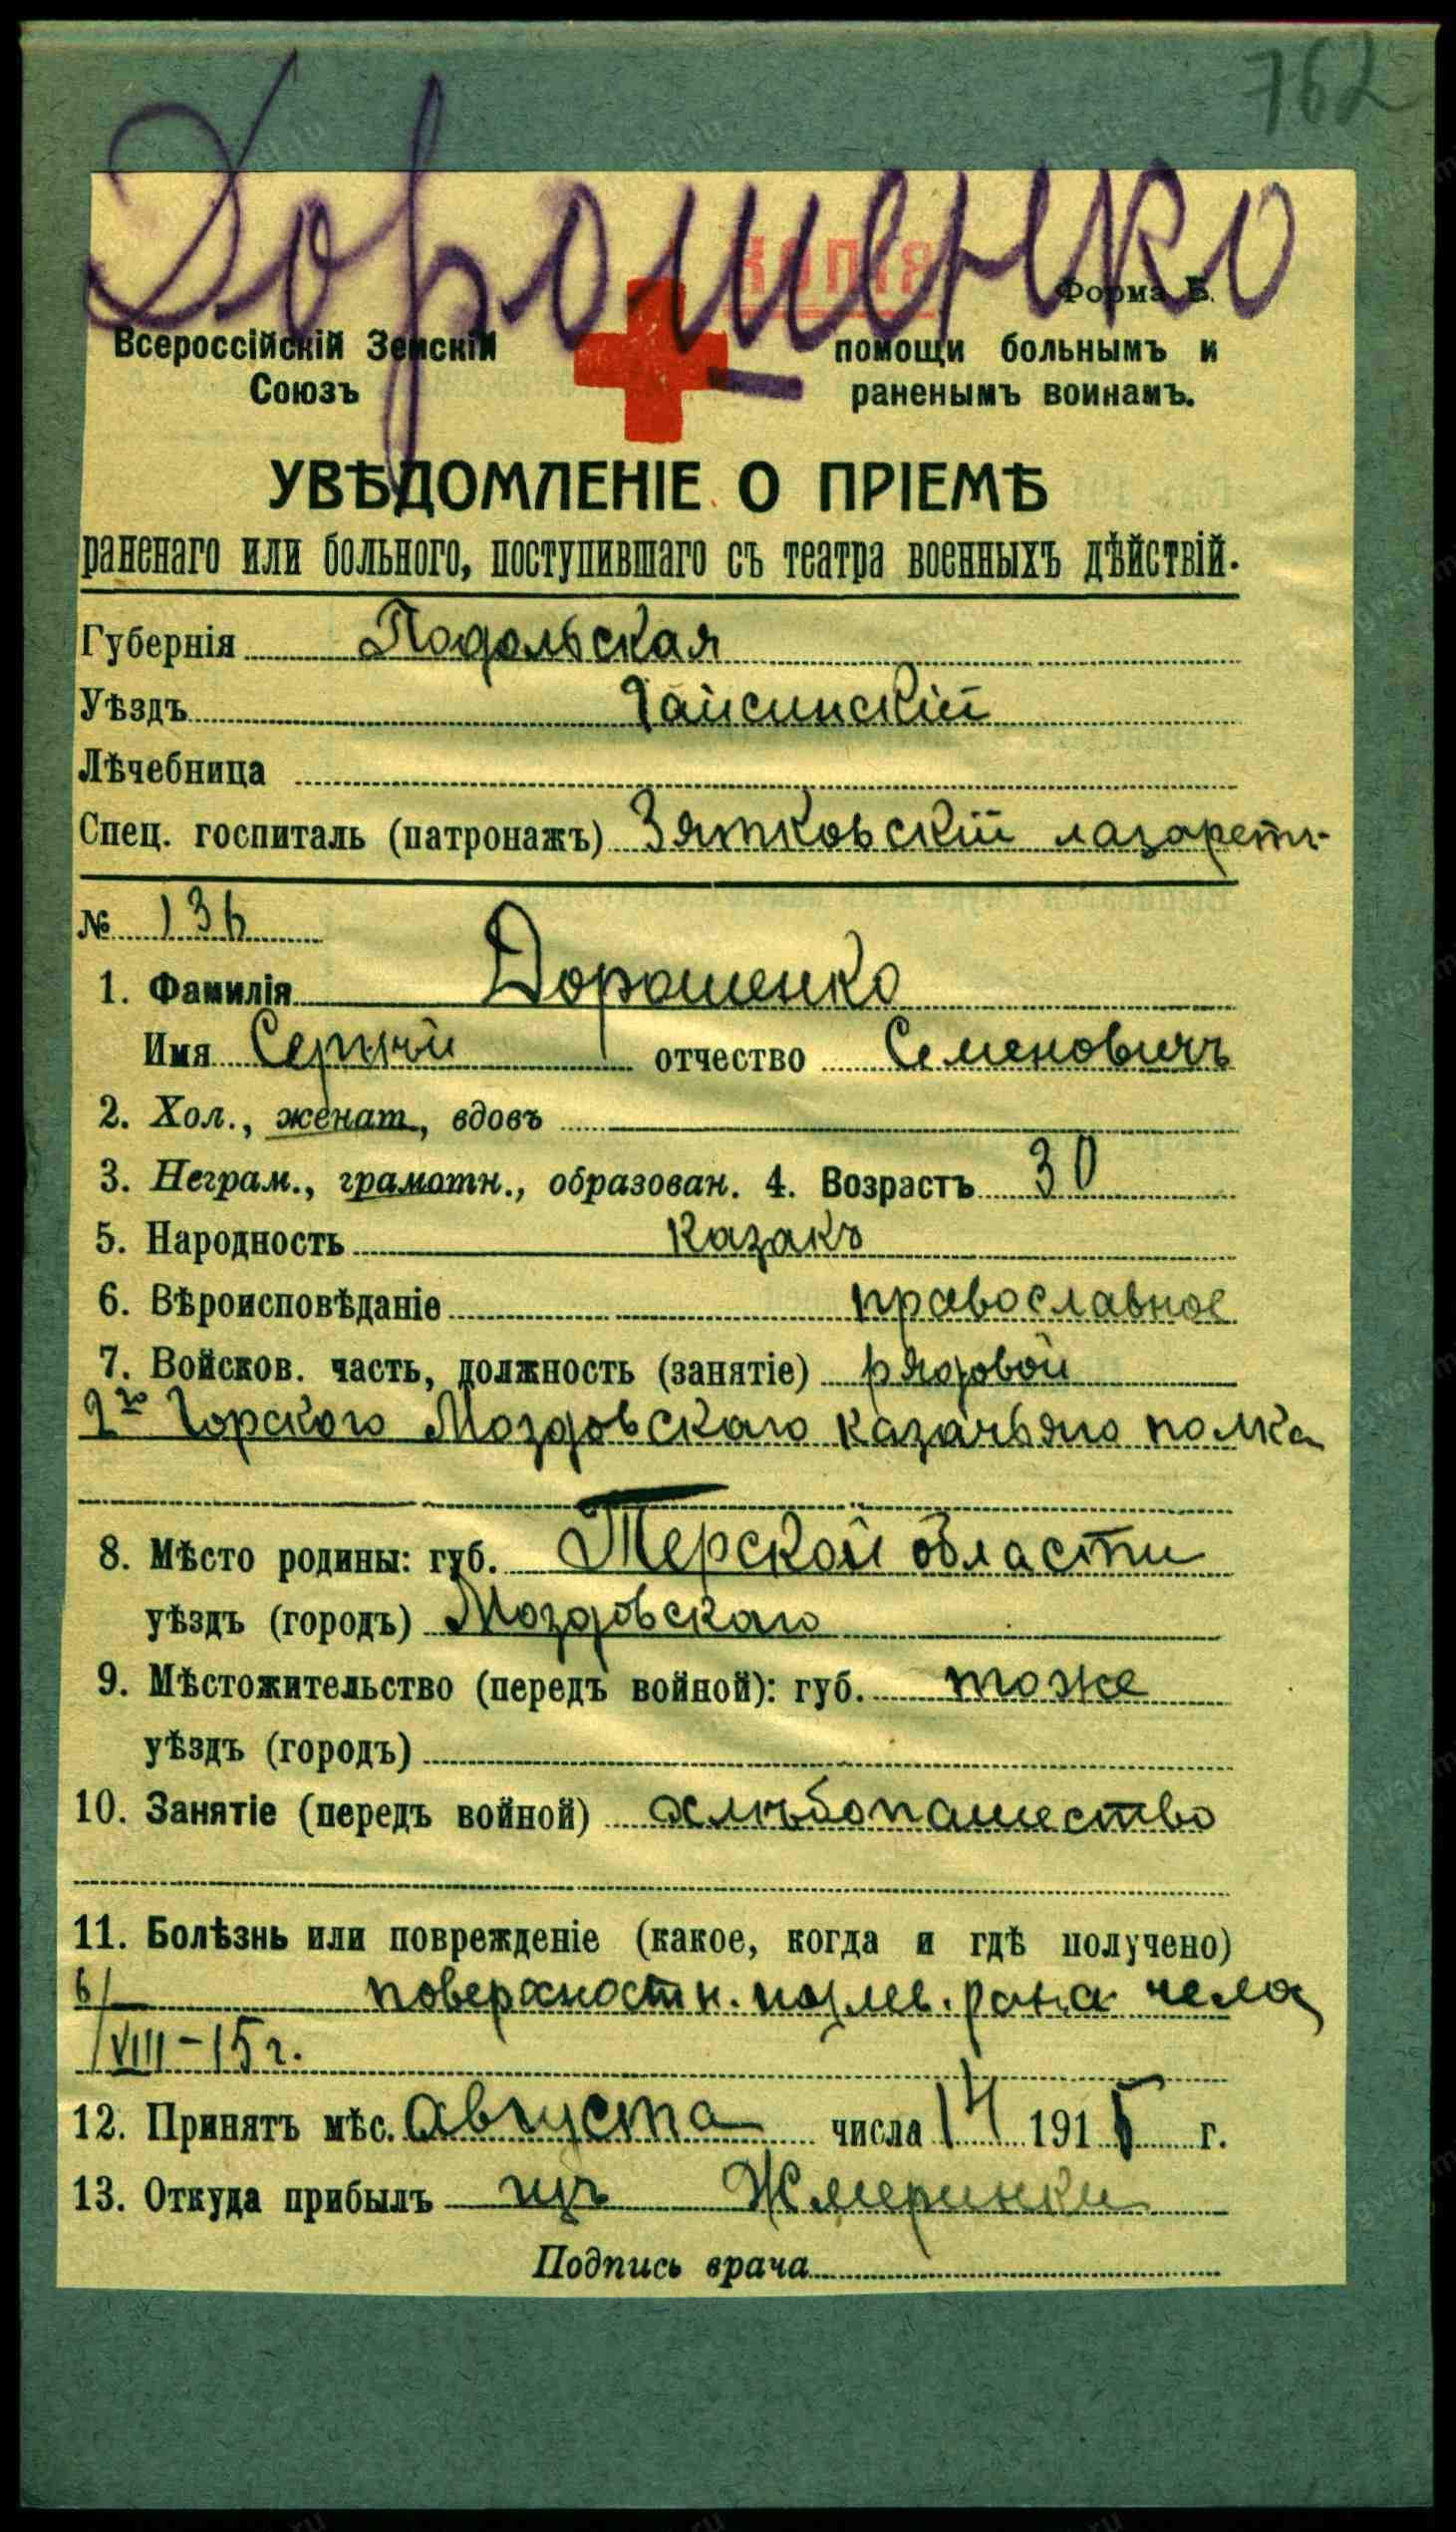 762
Дорошенко
КОПІЯ
Форма Б.
Всероссійскій Земскій помощи больнымъ и
Союзъ раненымъ воинамъ.
УВѢДОМЛЕНІЕ О ПРІЕМѢ
раненаго или больного, поступившаго съ театра военныхъ дѣйствій.
Губернія Подольская
Уѣздъ Гайсинскій
Лѣчебница
Спец. госпиталь (патронажъ) Зятковскій лазаретъ
№ 136
1. Фамилія Дорошенко
Имя Сергѣй отчество Семеновичъ
2. Хол., женат., вдовъ
3. Неграм., грамотн., образован. 4. Возрастъ 30
5. Народность казакъ
6. Вѣроисповѣданіе православное
7. Войсков. часть, должность (занятіе) рядовой
2го Горского Моздовскаго казачьяго полка
8. Мѣсто родины: губ. Терской области
уѣздъ (городъ) Моздовскаго
9. Мѣстожительство (передъ войной): губ. тоже
уѣздъ (городъ)
10. Занятіе (передъ войной) хлѣбопашество
11. Болѣзнь или поврежденіе (какое, когда и гдѣ получено)
6/ поверхностн. рана чела
/VIII-15 г.
12. Принятъ мѣс. августа числа 14 1915 г.
13. Откуда прибылъ изъ Жмеринки
Подпись врача